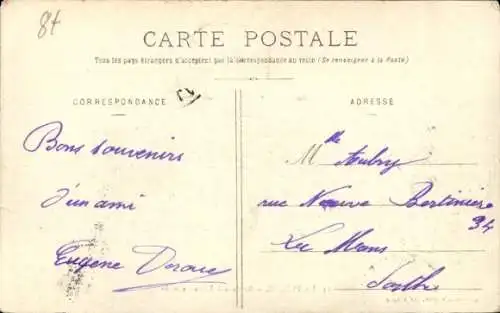 84
CARTE POSTALE
Tous les pays étrangers n'acceptent pas la correspondance au recto (Se renseigner à la Poste)
CORRESPONDANCE
ADRESSE
Bons souvenirs
d'un ami
Eugène
Mlle Aubry
rue Neuve Bertinière
34
Le Mans
Sarthe